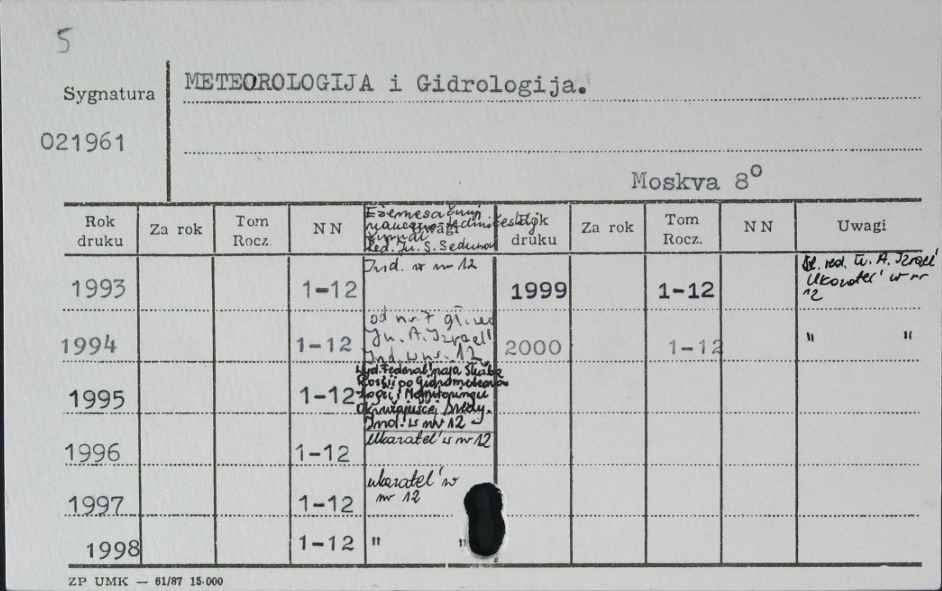 5
METEOROLOGIJA i Gidrologija.
Sygnatura
021961
Moskva 8⁰
Rok druku Za rok Tom Rocz. NN Uwagi druku Za rok Tom Rocz. NN Uwagi
Red. Ju. S. Sedunov
1993 1-12 Ind. w nr 12 1999 1-12 red. Ju. A. Izrael' Ukazatel' w nr 12
1994 1-12 od nr 7 gł. red. Ju. A. Izrael' Ind. w nr. 12 2000 1-12 " "
1995 1-12 Rossii po Gidrometeorologii i Monitoringu Okružajuščej Sredy. Ind. w nr 12
1996 1-12 Ukazatel' w nr 12
1997 1-12 ukazatel' w nr 12
1998 1-12 " "
ZP UMK — 61/87 15·000